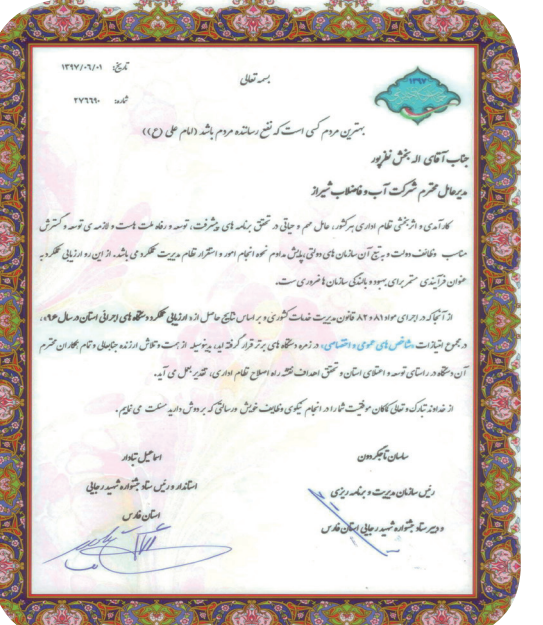 تاریخ: ۱۳۹۷/۰۶/۰۱
بسمه تعالی
شماره: ۲۷۶۶۹۰
۱۳۹۷
بهترین مردم کسی است که نفع رساننده مردم باشد (امام علی (ع))
جناب آقای اله بخش نظرپور
مدیرعامل محترم شرکت آب و فاضلاب شیراز
کارآمدی و اثربخشی نظام اداری هر کشور، عامل مهم و حیاتی در تحقق برنامه های پیشرفت، توسعه و رفاه ملت هاست و لازمه ی توسعه و گسترش
مناسب وظائف دولت و به تبع آن سازمان های دولتی، پایش مداوم نحوه انجام امور و استقرار نظام مدیریت عملکرد می باشد. از این رو ارزیابی عملکرد به
عنوان فرآیندی مستمر برای بهبود و بالندگی سازمان ها ضروری ست.
از آنجا که در اجرای مواد ۸۱ و ۸۲ قانون مدیریت خدمات کشوری و بر اساس نتایج حاصل از «ارزیابی عملکرد دستگاه های اجرائی استان در سال ۹۶»،
در مجموع امتیازات «شاخص های عمومی و اختصاصی» در زمره دستگاه های برتر قرار گرفته اید، بدینوسیله از همت و تلاش ارزنده جنابعالی و تمام همکاران محترم
آن دستگاه در راستای توسعه و اعتلای استان و تحقق اهداف نقشه راه اصلاح نظام اداری، تقدیر بعمل می آید.
از خداوند تبارک و تعالی کماکان موفقیت شما را در انجام نیکوی وظایف خویش و رسالتی که بر دوش دارید مسئلت می نمایم.
سامان تاجگردون
رئیس سازمان مدیریت و برنامه ریزی
و دبیر ستاد جشنواره شهید رجایی استان فارس
اسماعیل تبادار
استاندار و رئیس ستاد جشنواره شهید رجایی
استان فارس